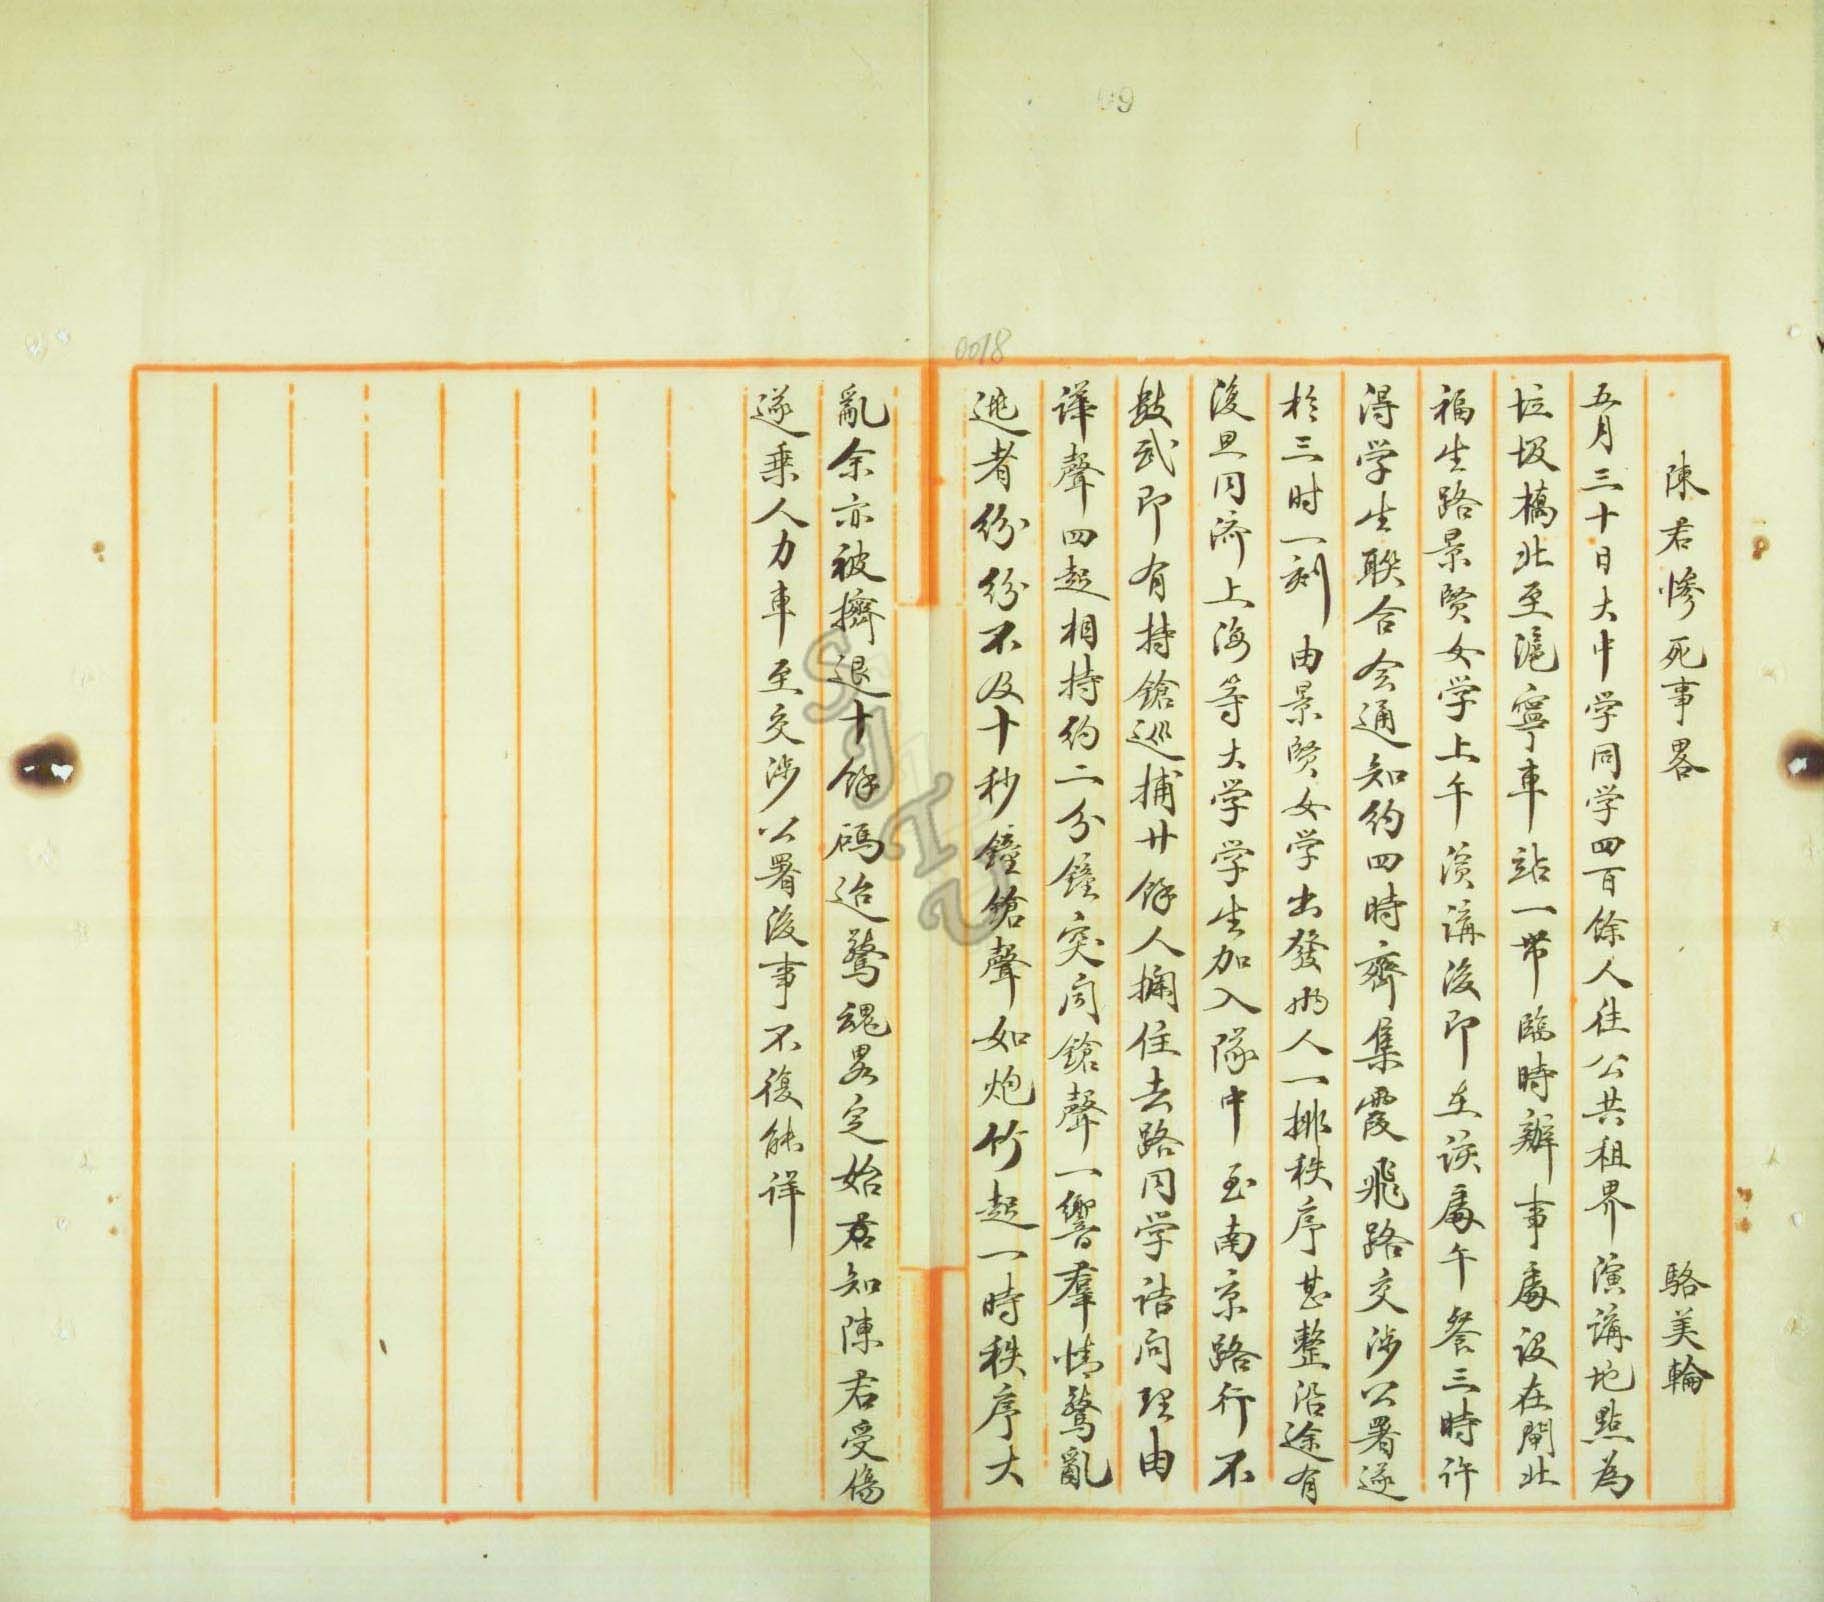 69
0018
陳君慘死事畧 駱美輪
五月三十日大中学同学四百餘人往公共租界演講地點為
垃圾橋北至滬寧車站一帶臨時辦事處设在閘北
福生路景贤女学上午演講後即在该處午餐三時许
得学生联合会通知约四時齊集霞飛路交涉公署遂
於三时一刻由景贤女学出發两人一排秩序甚整沿途有
復旦同济上海等大学学生加入隊中至南京路行不
数武即有持鎗巡捕廿餘人攔住去路同学诘问理由
譁聲四起相持约二分鐘突闻鎗聲一響羣情驚亂
逃者纷纷不及十秒鐘鎗聲如炮竹起一時秩序大
亂余亦被擠退十餘碼迨驚魂畧定始君知陳君受傷
遂乘人力車至交涉公署後事不復能详
SJTU